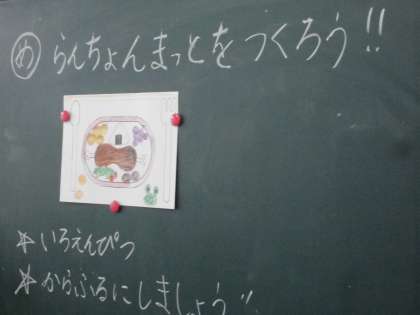 め らんちょんまっとをつくろう!!
☆いろえんぴつ
☆からふるにしましょう!!